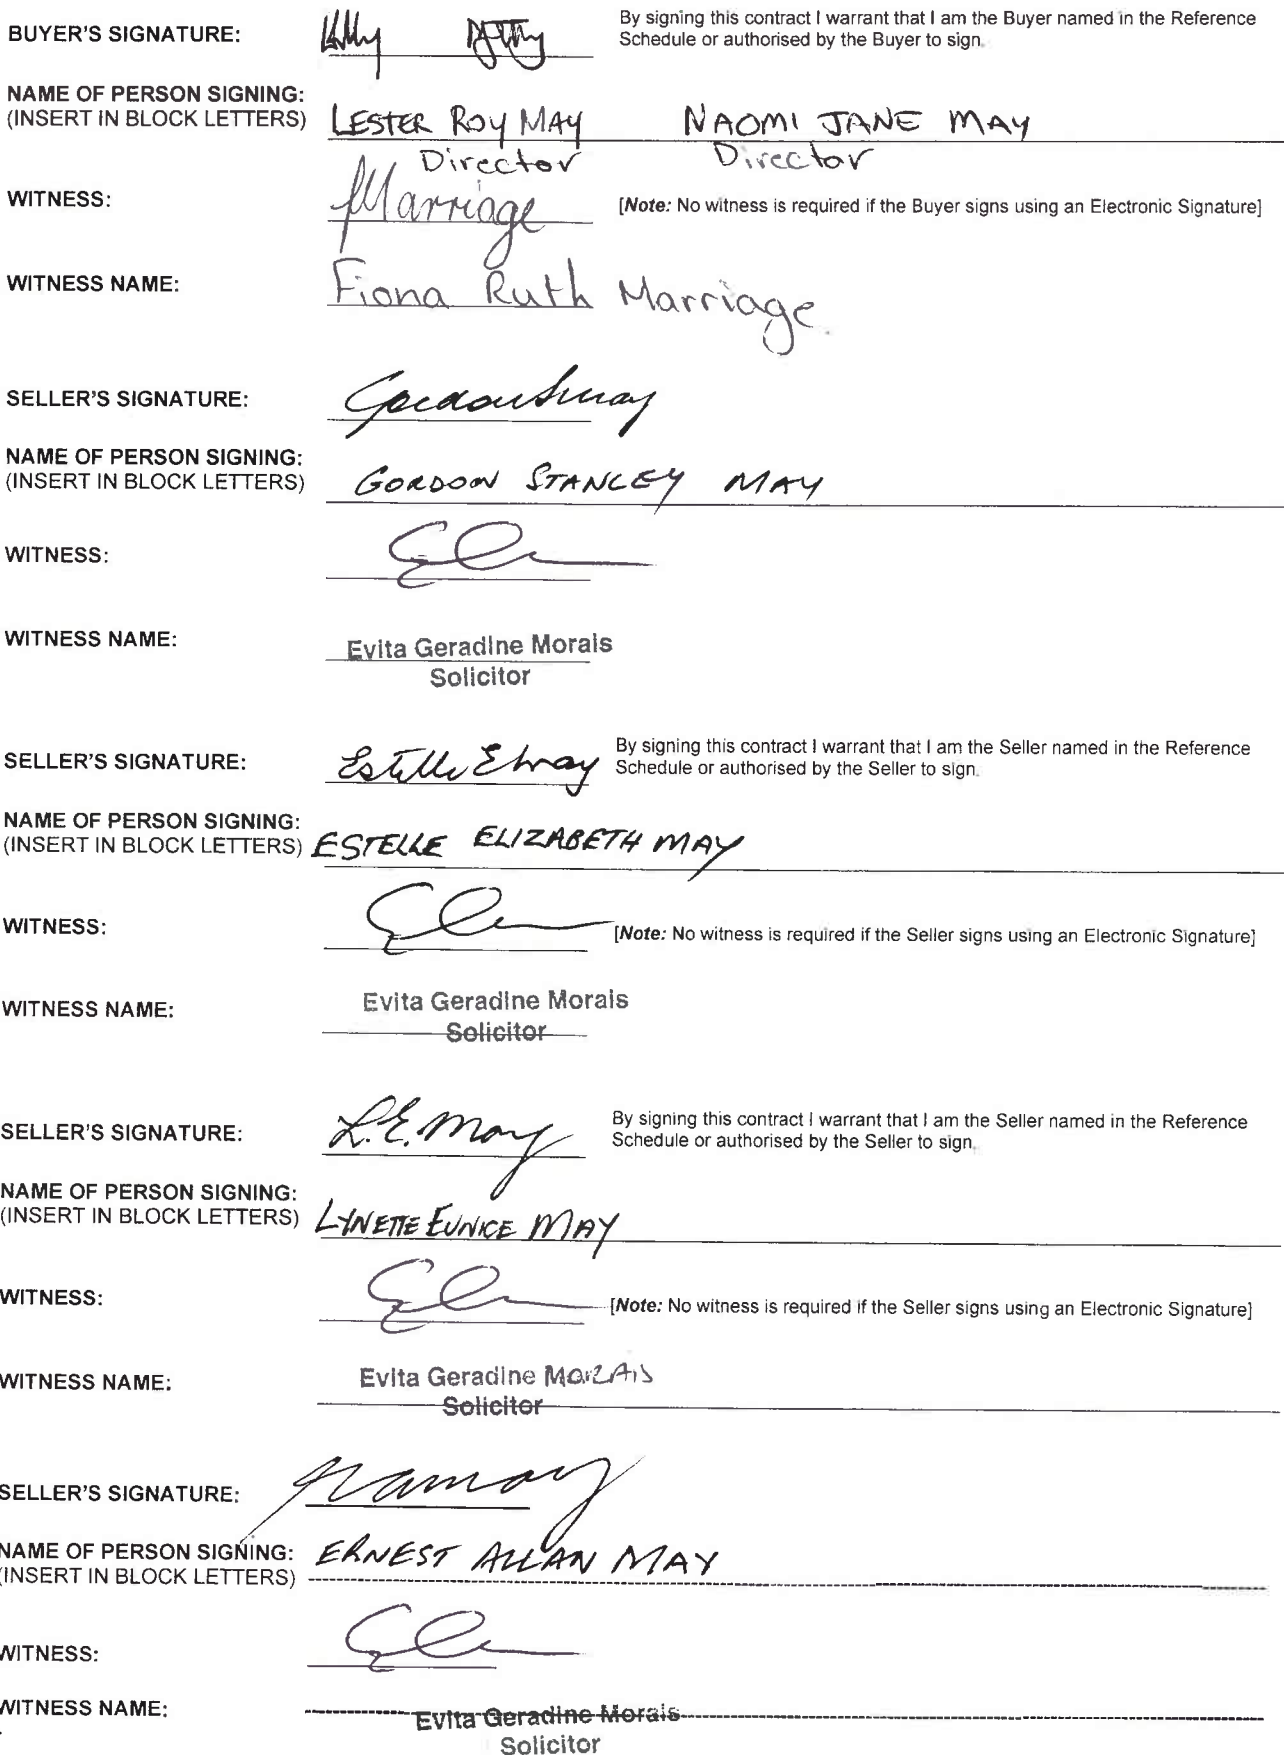 BUYER'S SIGNATURE:
By signing this contract I warrant that I am the Buyer named in the Reference
Schedule or authorised by the Buyer to sign.
NAME OF PERSON SIGNING:
(INSERT IN BLOCK LETTERS) LESTER ROY MAY NAOMI JANE MAY
Director Director
WITNESS: Marriage [Note: No witness is required if the Buyer signs using an Electronic Signature]
WITNESS NAME: Fiona Ruth Marriage
SELLER'S SIGNATURE:
NAME OF PERSON SIGNING:
(INSERT IN BLOCK LETTERS) GORDON STANLEY MAY
WITNESS:
WITNESS NAME: Evita Geradine Morais
Solicitor
SELLER'S SIGNATURE: Estelle E May
By signing this contract I warrant that I am the Seller named in the Reference
Schedule or authorised by the Seller to sign.
NAME OF PERSON SIGNING:
(INSERT IN BLOCK LETTERS) ESTELLE ELIZABETH MAY
WITNESS: [Note: No witness is required if the Seller signs using an Electronic Signature]
WITNESS NAME: Evita Geradine Morais
Solicitor
SELLER'S SIGNATURE: L.E. May
By signing this contract I warrant that I am the Seller named in the Reference
Schedule or authorised by the Seller to sign.
NAME OF PERSON SIGNING:
(INSERT IN BLOCK LETTERS) LYNETTE EUNICE MAY
WITNESS: [Note: No witness is required if the Seller signs using an Electronic Signature]
WITNESS NAME: Evita Geradine MORAIS
Solicitor
SELLER'S SIGNATURE:
NAME OF PERSON SIGNING: ERNEST ALLAN MAY
(INSERT IN BLOCK LETTERS)
WITNESS:
WITNESS NAME: Evita Geradine Morais
Solicitor